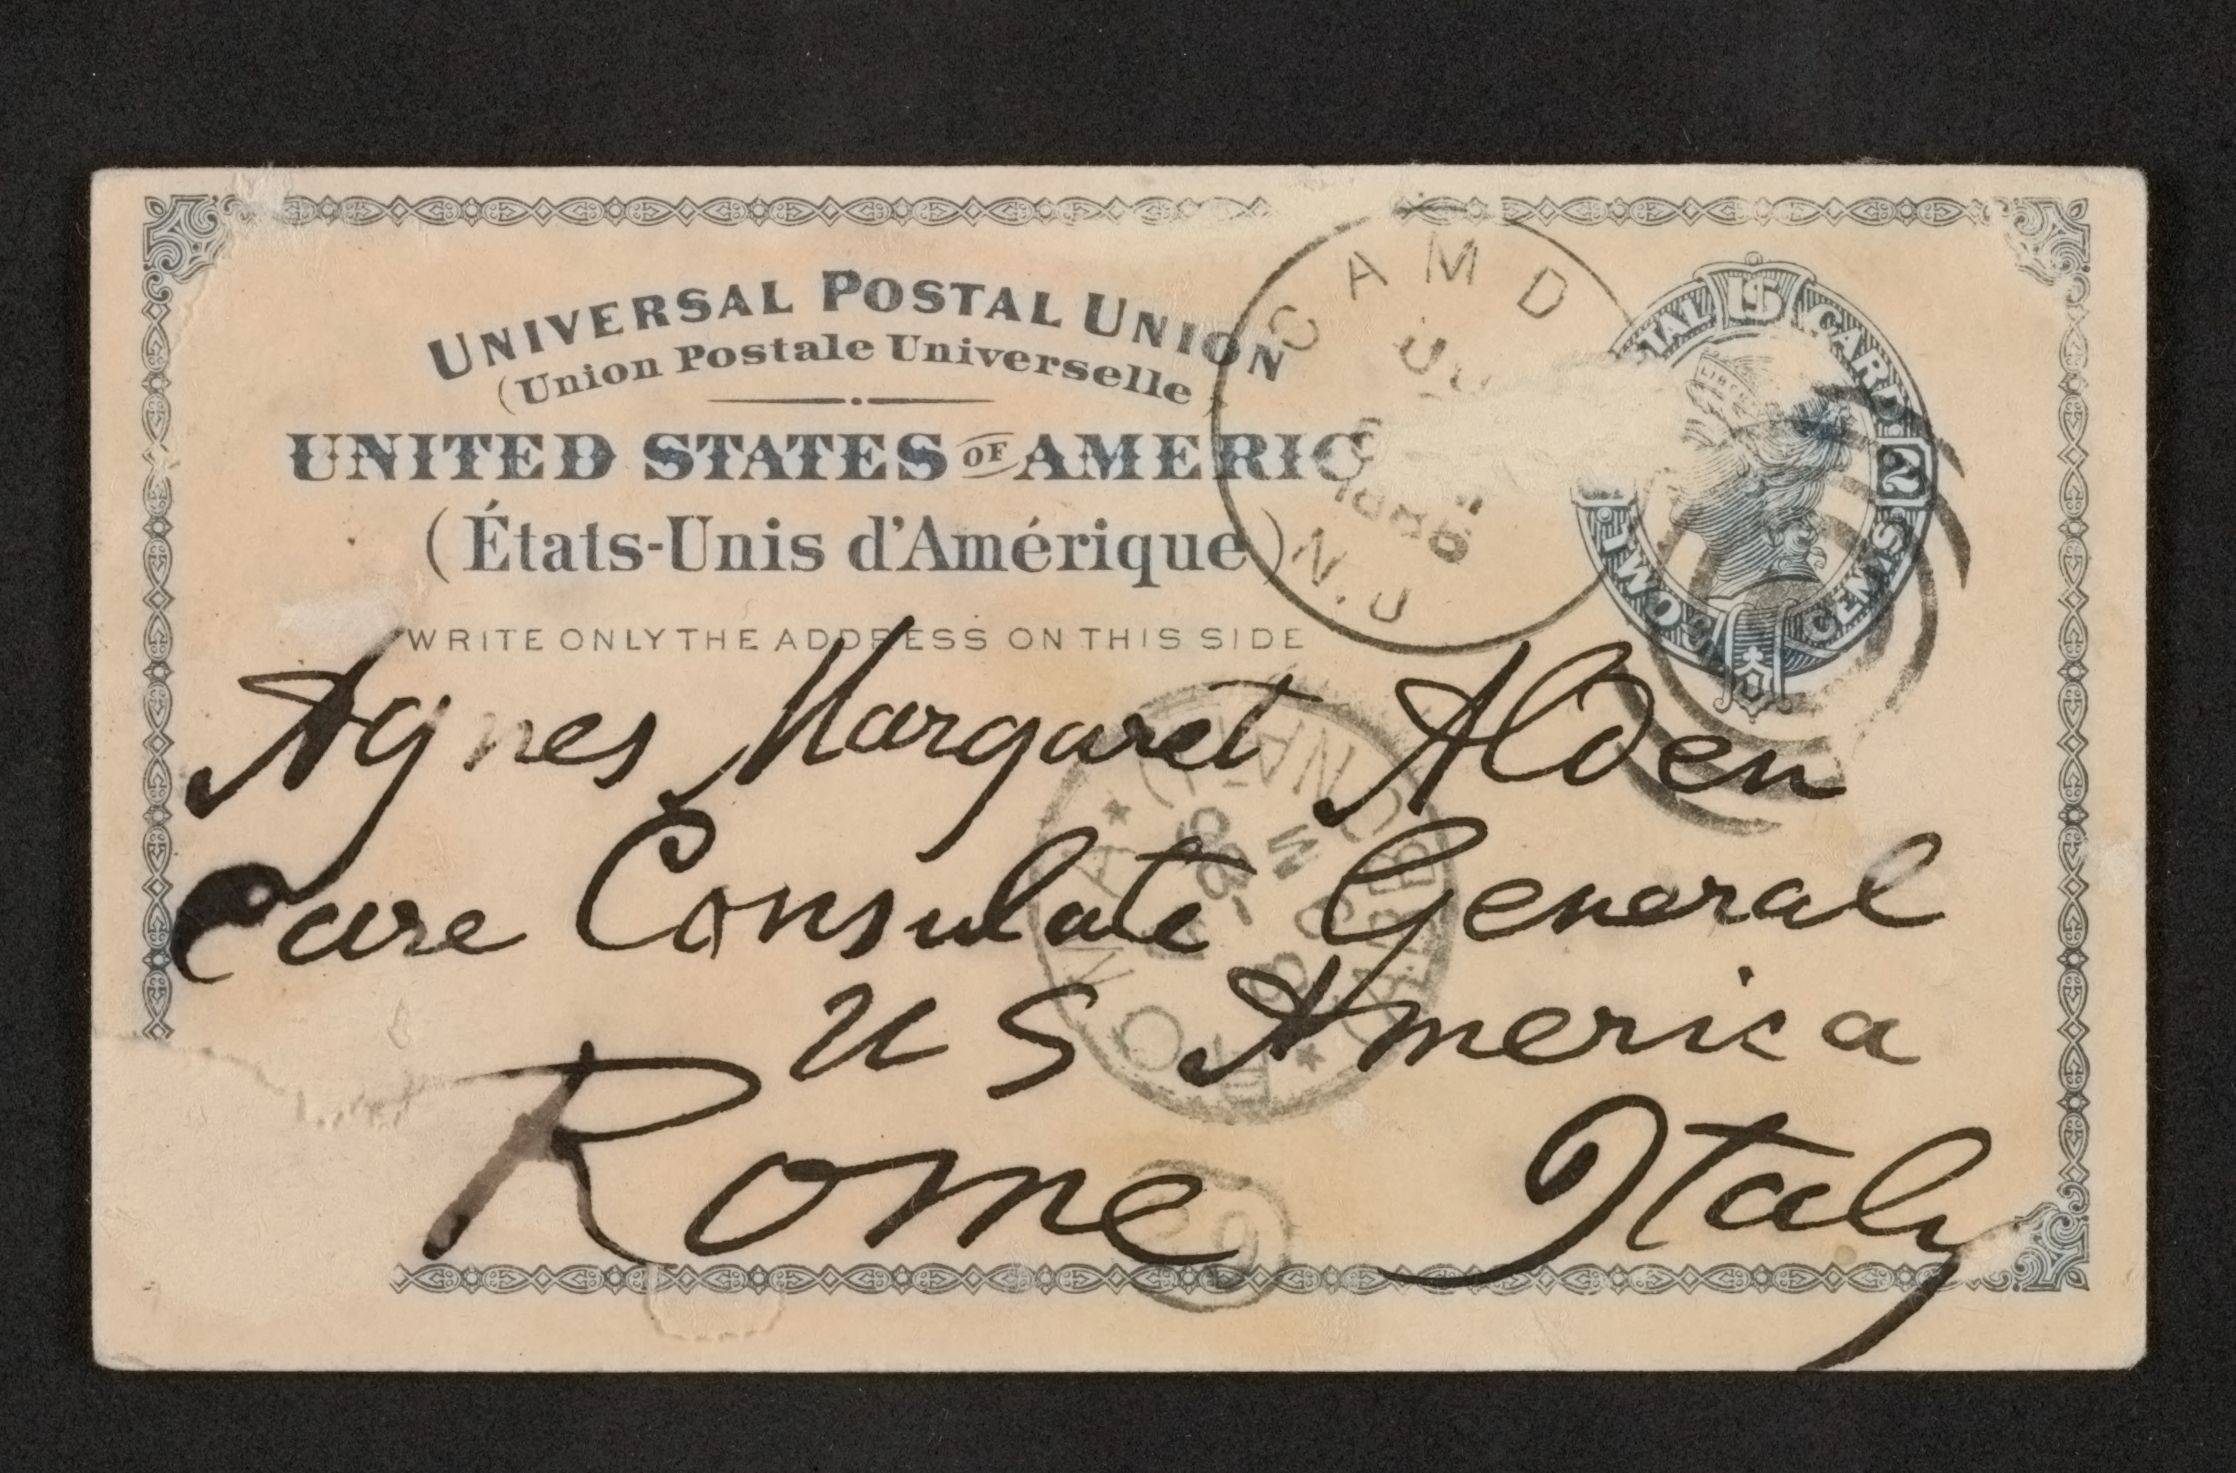 UNIVERSAL POSTAL UNION
(Union Postale Universelle)
UNITED STATES OF AMERIC
(États-Unis d'Amérique)
WRITE ONLY THE ADDRESS ON THIS SIDE
CAMD
N.J
1886
STAL US CARD
2
TWO CENTS
Agnes Margaret Alden
Care Consulate General
U S America
Rome Italy
ROMA